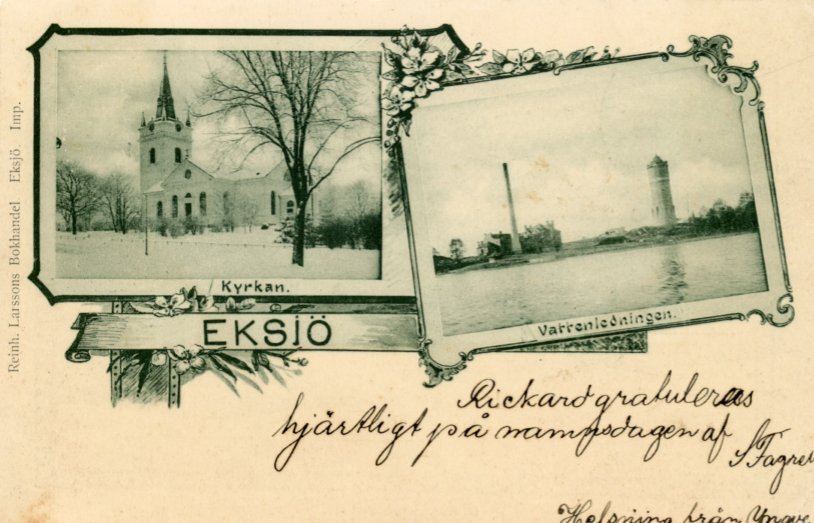 Reinh. Larssons Bokhandel Eksjö. Imp.
Kyrkan.
Vattenledningen.
EKSJÖ
Rickard gratuleras
hjärtligt på namnsdagen af
Helsning från Yngve